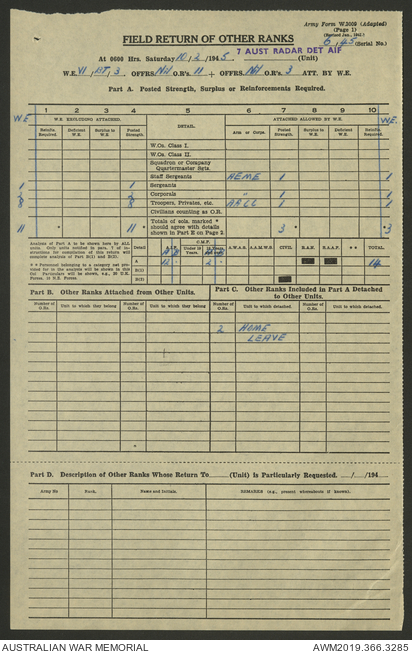 Army Form W.3009 (Adapted)
(Page 1)
FIELD RETURN OF OTHER RANKS
6/45 (Serial No.)
7 AUST RADAR DET AIF
At 0600 Hrs. Saturday 10/2/1945. (Unit)
W.E. VI/ /3. OFFRS. NIL O.R's. 11 + OFFRS. NIL O.R's. 3 ATT. BY W.E.
Part A. Posted Strength, Surplus or Reinforcements Required.
1 2 3 4 5 6 7 8 9 10
W.E. W.E. EXCLUDING ATTACHED. DETAIL. ATTACHED ALLOWED BY W.E. W.E.
Reinfts. Required. Deficient W.E. Surplus to W.E. Posted Strength. Arm or Corps. Posted Strength. Surplus to W.E. Deficient W.E. Reinfts. Required.
W.Os. Class I.
W.Os. Class II.
Squadron or Company Quartermaster Sgts.
Staff Sergeants AEME 1 1
1 1 Sergeants
2 2 Corporals " 1 1
8 8 Troopers, Privates, etc. 1 1
Civilians counting as O.R.
11 * 11 * Totals of cols. marked * should agree with details shown in Part E on Page 2 3 * * 3
Analysis of Part A to be shown here by ALL units.
Detail A.I.F. C.M.F. A.W.A.S. A.A.M.W.S. CIVIL R.A.N. R.A.A.F. * * TOTAL.
A 12 2 14
B(1)
B(2)
Part B. Other Ranks Attached from Other Units. Part C. Other Ranks Included in Part A Detached to Other Units.
Number of O.Rs. Unit to which they belong Number of O.Rs. Unit to which they belong Number of O.Rs. Unit to which detached. Number of O.Rs. Unit to which detached.
2 HOME
LEAVE
Part D. Description of Other Ranks Whose Return To (Unit) is Particularly Requested. / /194
Army No Rank. Name and Initials. REMARKS (e.g., present whereabouts if known).
AUSTRALIAN WAR MEMORIAL AWM2019.366.3285